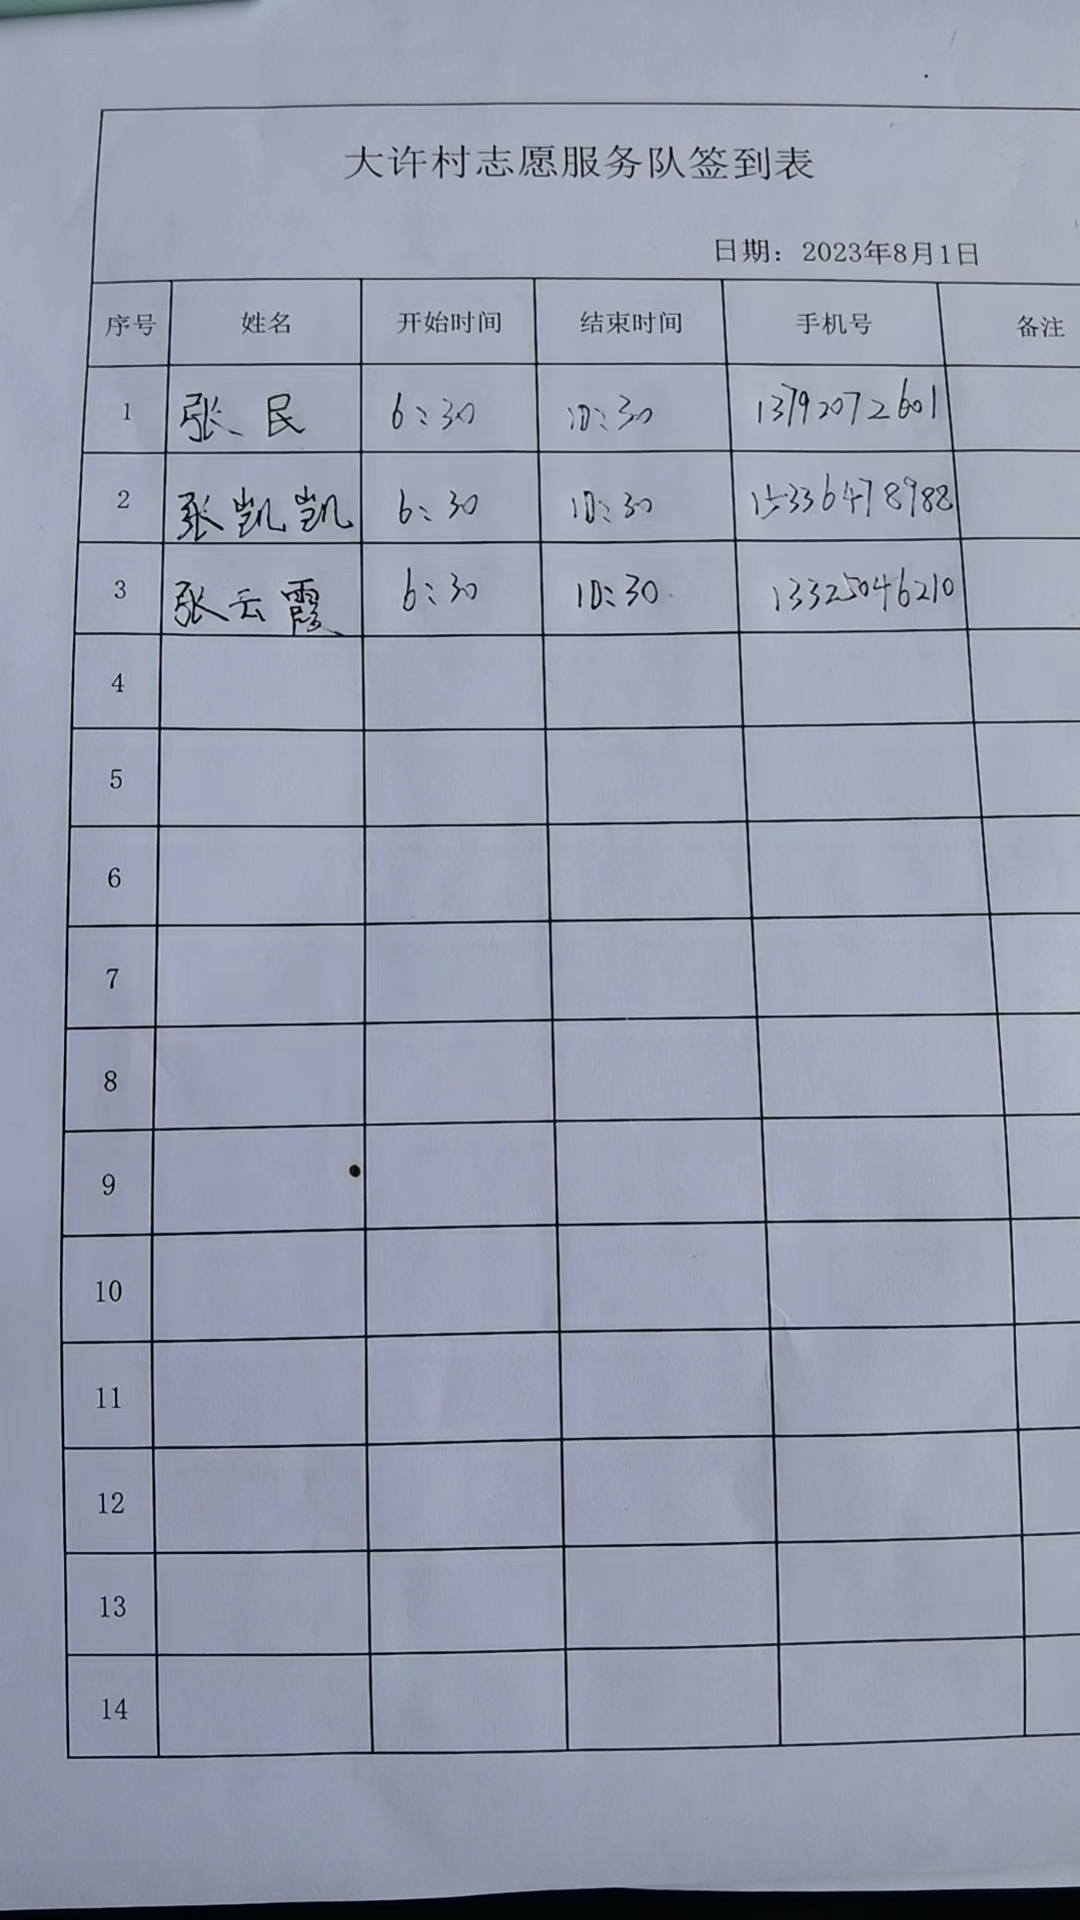 大许村志愿服务队签到表
日期：2023年8月1日
序号 姓名 开始时间 结束时间 手机号 备注
1 张民 6:30 10:30 13792072601
2 张凯凯 6:30 10:30 15336478988
3 张云霞 6:30 10:30 13325046210
4
5
6
7
8
9
10
11
12
13
14